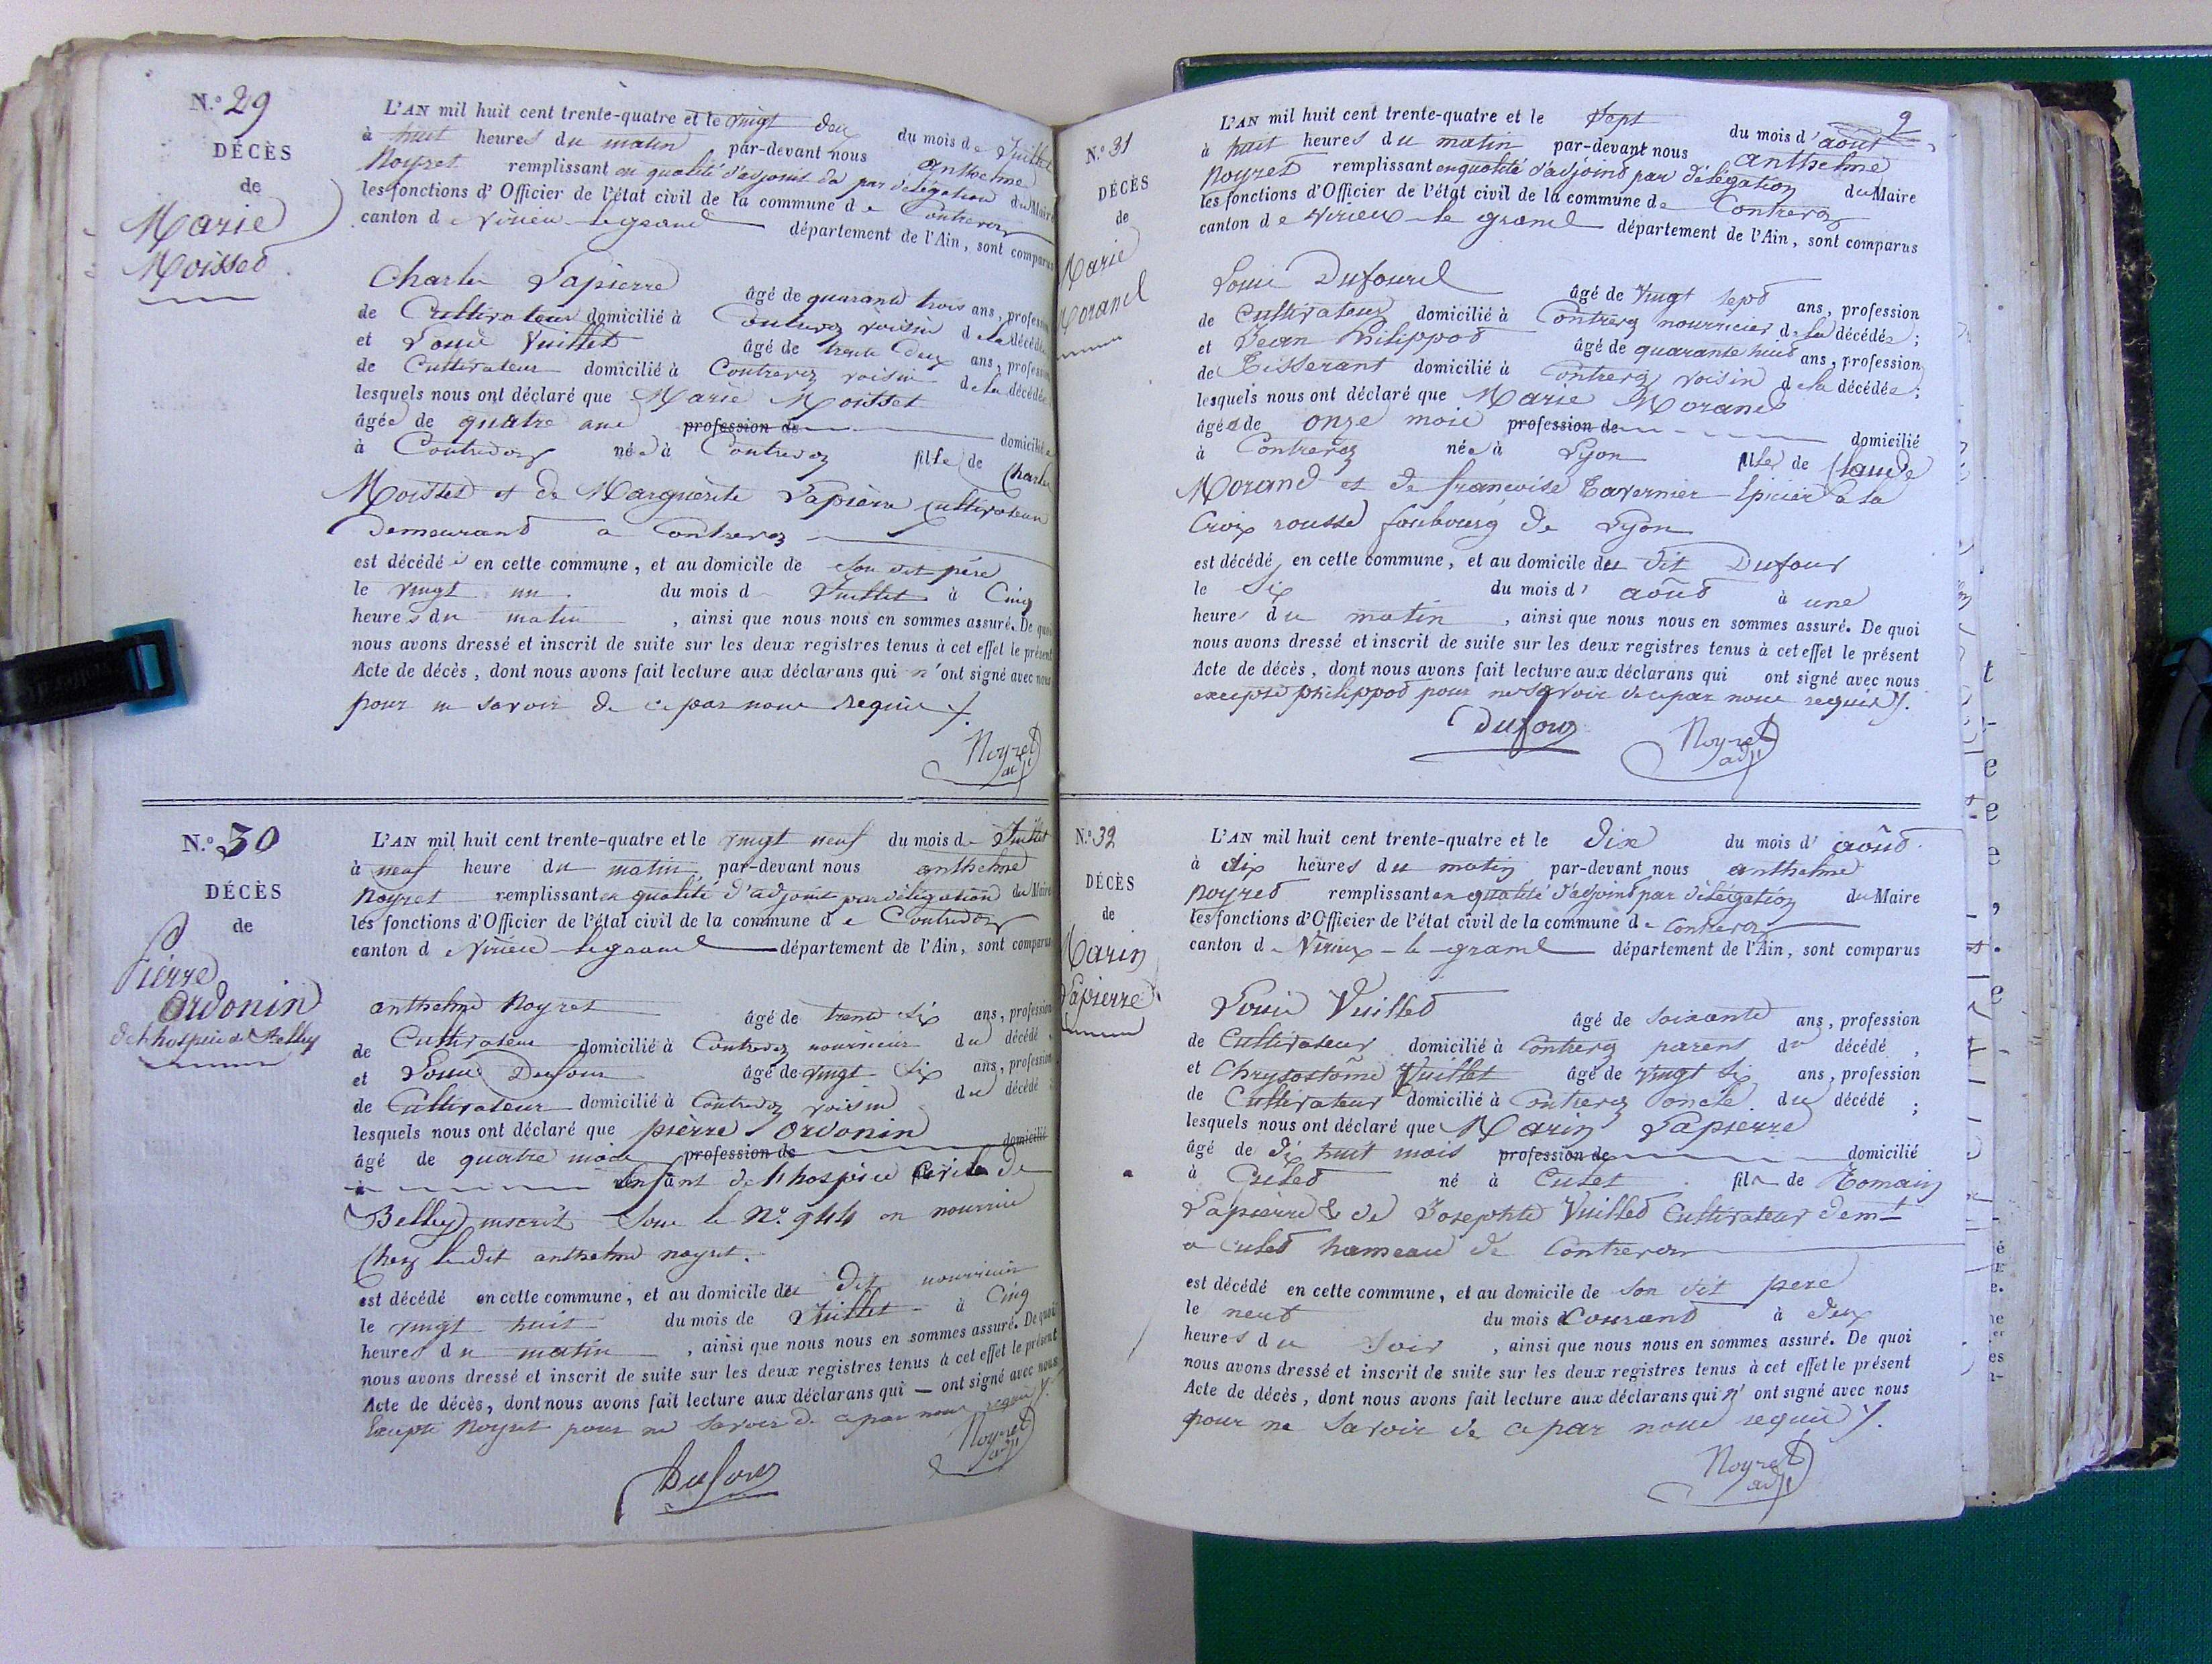 N.º 29
DÉCÈS
de
Marie
Moisset
L'AN mil huit cent trente-quatre et le vingt deux du mois de Juillet
à huit heures du matin par-devant nous anthelme
Noyret remplissant en qualité d'adjoint par délégation du Maire
les fonctions d'Officier de l'état civil de la commune de Contrevoz
canton de Virieu-le-grand département de l'Ain, sont comparus
Charles Lapierre âgé de quarante trois ans, profession
de Cultivateur domicilié à Contrevoz voisin de la décédée
et Louis Vuillet âgé de trente deux ans, profession
de Cultivateur domicilié à Contrevoz voisin de la décédée
lesquels nous ont déclaré que Marie Moisset
âgée de quatre ans profession de domiciliée
à Contrevoz née à Contrevoz fille de Charles
Moisset et de Marguerite Lapierre Cultivateurs
demeurant a Contrevoz
est décédée en cette commune, et au domicile de son dit père
le vingt un du mois de Juillet à Cinq
heures du matin, ainsi que nous nous en sommes assuré. De quoi
nous avons dressé et inscrit de suite sur les deux registres tenus à cet effet le présent
Acte de décès, dont nous avons fait lecture aux déclarans qui n'ont signé avec nous
pour ne savoir de ce par nous requis
Noyret
adj
N.º 30
DÉCÈS
de
Pierre
Ordonin
de l'hospice de Belley
L'AN mil huit cent trente-quatre et le vingt neuf du mois de Juillet
à neuf heure du matin, par-devant nous anthelme
Noyret remplissant en qualité d'adjoint par délégation du Maire
les fonctions d'Officier de l'état civil de la commune de Contrevoz
canton de Virieu-le-grand département de l'Ain, sont comparus
anthelme Noyret âgé de trente six ans, profession
de Cultivateur domicilié à Contrevoz nourricier du décédé,
et Louis Dufour âgé de vingt six ans, profession
de Cultivateur domicilié à Contrevoz voisin du décédé
lesquels nous ont déclaré que pierre Ordonin
âgé de quatre mois profession de domicilié
à enfant de l'hospice Civile de
Belley inscrit sous le N.º 944 en nourrice
Chez ledit anthelme noyret.
est décédé en cette commune, et au domicile du dit nourricier
le vingt huit du mois de Juillet à Cinq
heures du matin, ainsi que nous nous en sommes assuré. De quoi
nous avons dressé et inscrit de suite sur les deux registres tenus à cet effet le présent
Acte de décès, dont nous avons fait lecture aux déclarans qui — ont signé avec nous
Excepté Noyret pour ne savoir de ce par nous requis
Noyret
adj
Dufour
9
N.º 31
DÉCÈS
de
Marie
Morand
L'AN mil huit cent trente-quatre et le sept du mois d'août
à huit heures du matin par-devant nous anthelme
Noyret remplissant en qualité d'adjoint par délégation du Maire
les fonctions d'Officier de l'état civil de la commune de Contrevoz
canton de Virieux-le grand département de l'Ain, sont comparus
Louis Dufour âgé de vingt sept ans, profession
de Cultivateur domicilié à Contrevoz nourricier de la décédée;
et Jean Philippot âgé de quarante huit ans, profession
de Tisserant domicilié à Contrevoz voisin de la décédée;
lesquels nous ont déclaré que Marie Morand
âgée de onze mois profession de domicilié
à Contrevoz née à Lyon fille de Claude
Morand et de françoise Tavernier Epicier a la
Croix rousse faubourg de Lyon
est décédé en cette commune, et au domicile du dit Dufour
le six du mois d'août à une
heure du matin, ainsi que nous nous en sommes assuré. De quoi
nous avons dressé et inscrit de suite sur les deux registres tenus à cet effet le présent
Acte de décès, dont nous avons fait lecture aux déclarans qui ont signé avec nous
excepté philippot pour ne savoir de ce par nous requis
Dufour
Noyret
adj
N.º 32
DÉCÈS
de
Marin
Lapierre
L'AN mil huit cent trente-quatre et le dix du mois d'août
à dix heures du matin par-devant nous anthelme
Noyret remplissant en qualité d'adjoint par délégation du Maire
les fonctions d'Officier de l'état civil de la commune de Contrevoz
canton de Virieux-le-grand département de l'Ain, sont comparus
Louis Vuillet âgé de soixante ans, profession
de Cultivateur domicilié à Contrevoz parent du décédé,
et Chrysostôme Vuillet âgé de vingt six ans, profession
de Cultivateur domicilié à Contrevoz oncle du décédé;
lesquels nous ont déclaré que Marin Lapierre
âgé de dix huit mois profession de domicilié
à Culet né à Culet fils de Romain
Lapierre & de Josephte Vuillet Cultivateur demt
a Culet hameau de Contrevoz
est décédé en cette commune, et au domicile de son dit père
le neuf du mois Courant à deux
heures du soir, ainsi que nous nous en sommes assuré. De quoi
nous avons dressé et inscrit de suite sur les deux registres tenus à cet effet le présent
Acte de décès, dont nous avons fait lecture aux déclarans qui n'ont signé avec nous
pour ne savoir de ce par nous requis
Noyret
adj